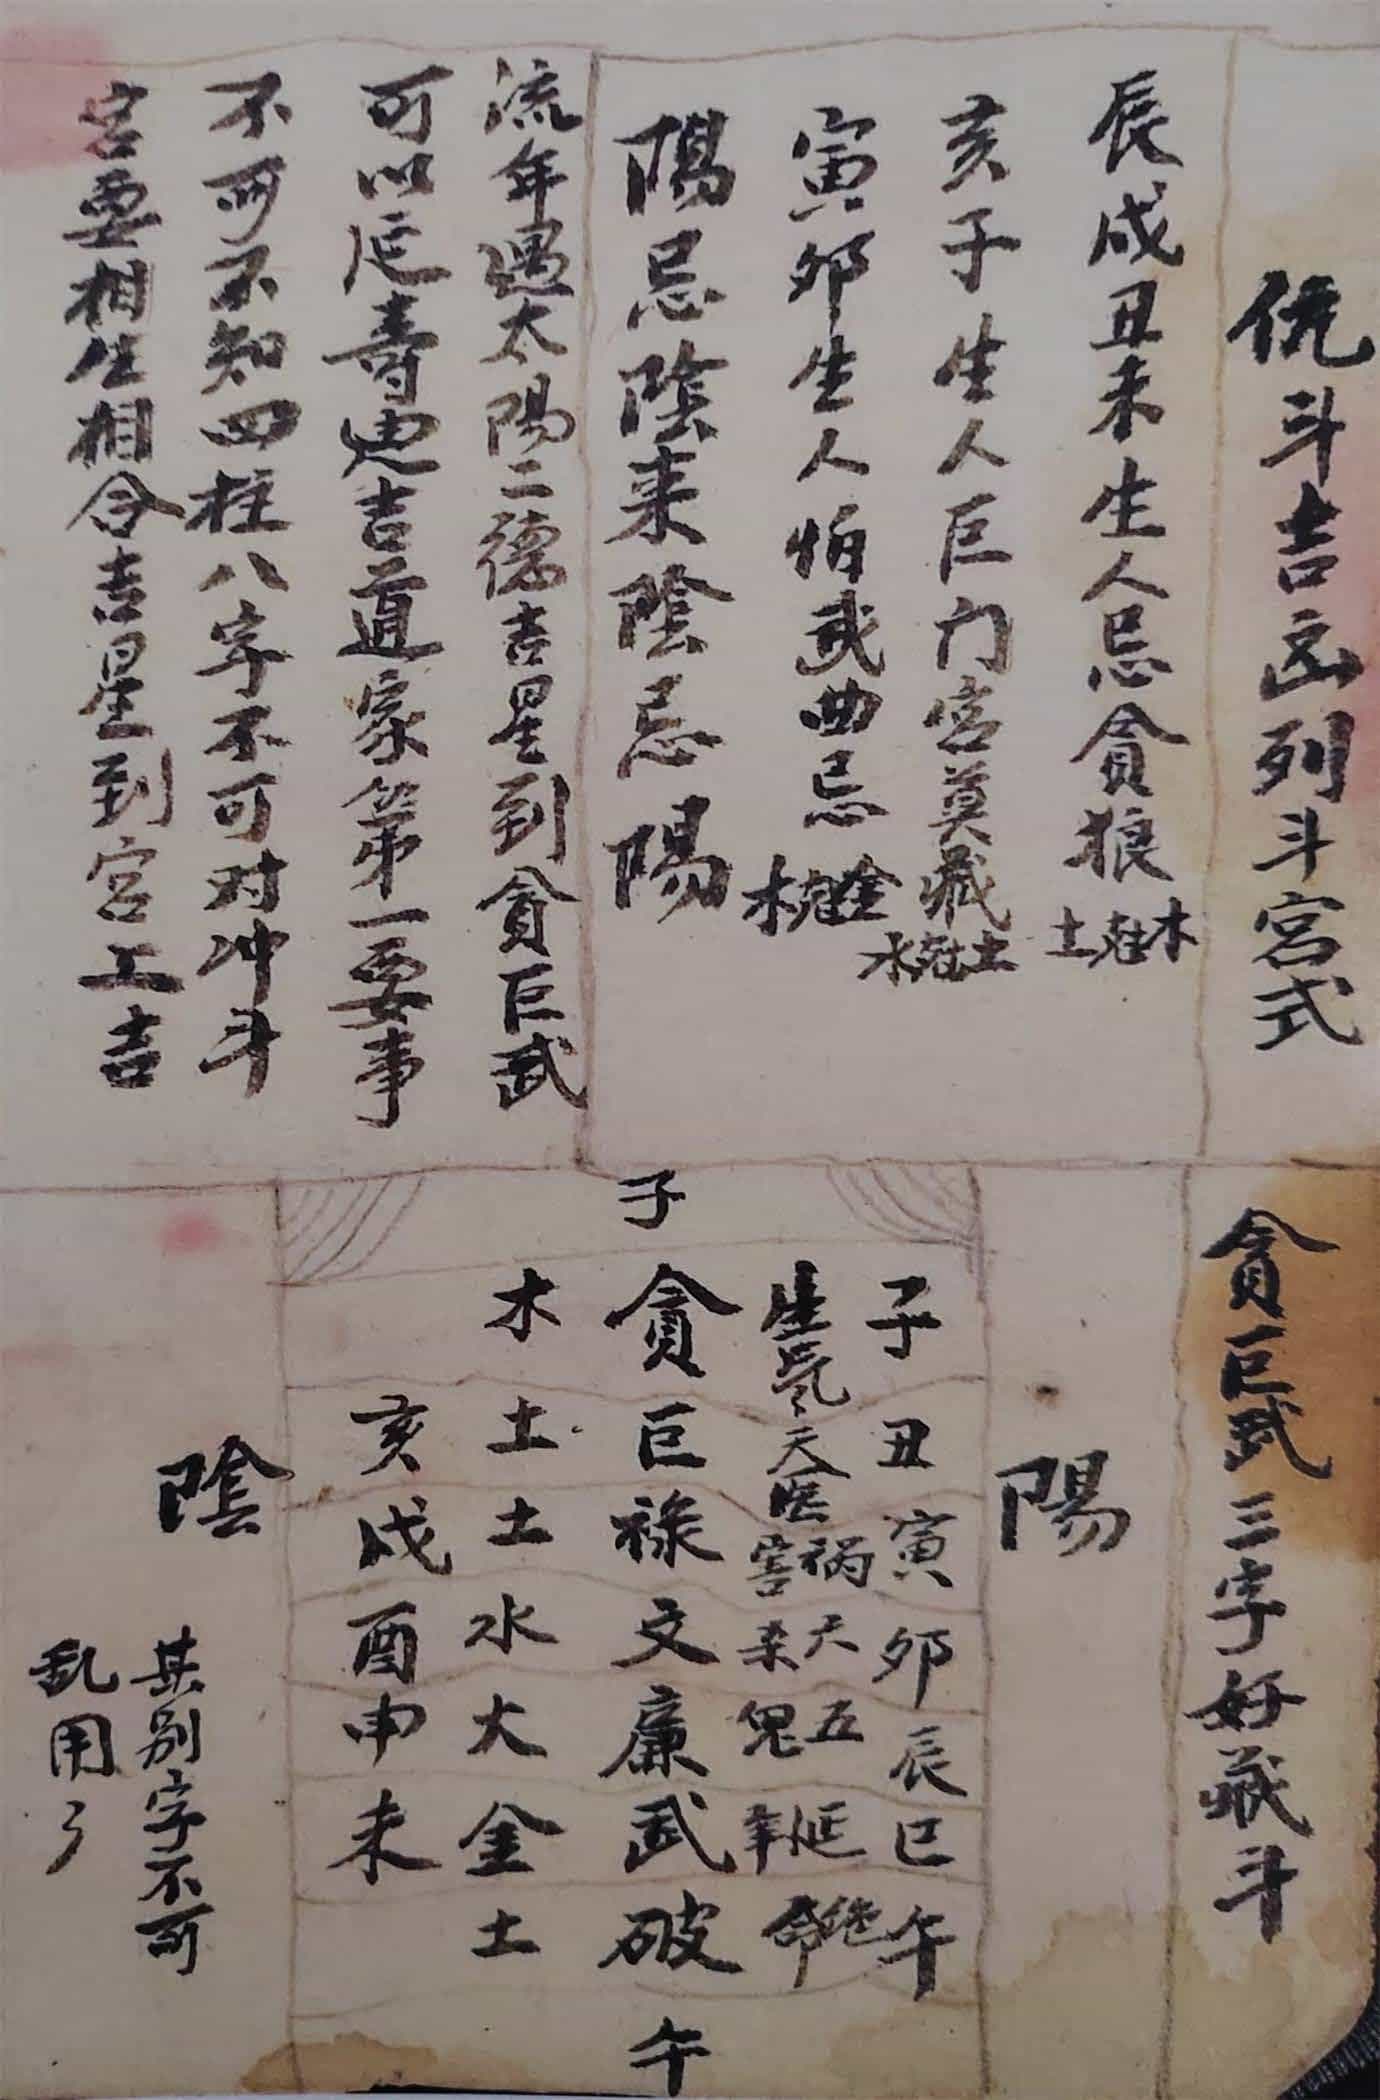 侊斗吉凶列斗宫式
辰戌丑未生人忌貪狼 木尅土
亥子生人巨门宫莫藏 土尅水
寅卯生人怕武曲忌 金尅木
陽忌陰来陰忌陽
流年遇太陽二德吉星到貪巨武
可以延寿迪吉道家第一要事
不可不知四柱八字不可对冲斗
宫要相生相合吉星到宫上吉
貪巨武三字好藏斗
陽
子
子丑寅卯辰巳午
生氣 天医 祸害 天杀 五鬼 延年 绝命
貪巨禄文廉武破
木土土水火金土
亥戌酉申未
午
陰
其别字不可
乱用了